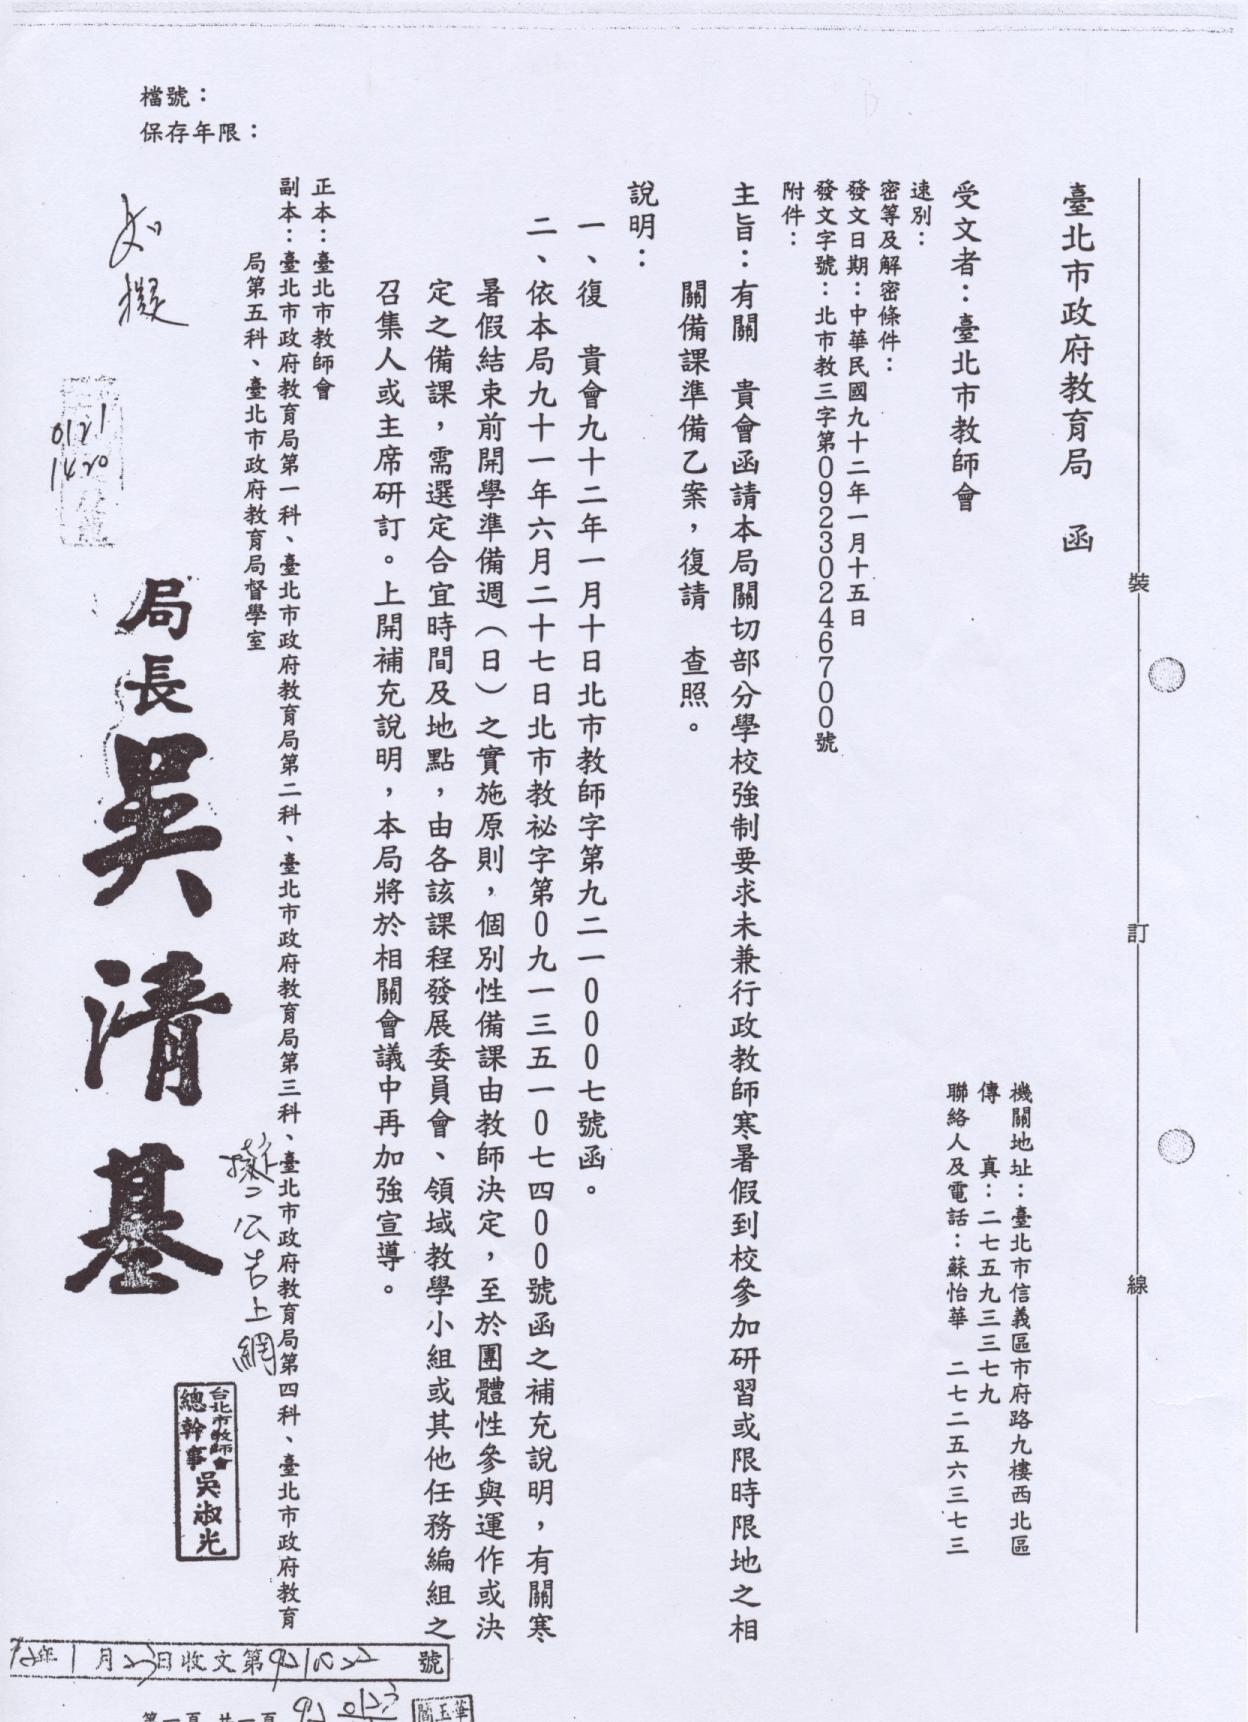 檔號：
保存年限：
臺北市政府教育局　函
機關地址：臺北市信義區市府路九樓西北區
傳　真：二七五九三三七九
聯絡人及電話：蘇怡華　二七二五六三七三
受文者：臺北市教師會
速別：
密等及解密條件：
發文日期：中華民國九十二年一月十五日
發文字號：北市教三字第09230246700號
附件：
主旨：有關　貴會函請本局關切部分學校強制要求未兼行政教師寒暑假到校參加研習或限時限地之相
關備課準備乙案，復請　查照。
說明：
一、復　貴會九十二年一月十日北市教師字第九二一０００七號函。
二、依本局九十一年六月二十七日北市教祕字第０九一三五一０七四００號函之補充說明，有關寒
暑假結束前開學準備週（日）之實施原則，個別性備課由教師決定，至於團體性參與運作或決
定之備課，需選定合宜時間及地點，由各該課程發展委員會、領域教學小組或其他任務編組之
召集人或主席研訂。上開補充說明，本局將於相關會議中再加強宣導。
正本：臺北市教師會
副本：臺北市政府教育局第一科、臺北市政府教育局第二科、臺北市政府教育局第三科、臺北市政府教育局第四科、臺北市政府教育
局第五科、臺北市政府教育局督學室
局長吳清基
如擬
0121
1420
擬公告上網
台北市教師會
總幹事吳淑光
裝
訂
線
92年1月23日收文第921022號
第一頁 共一頁
92 0123